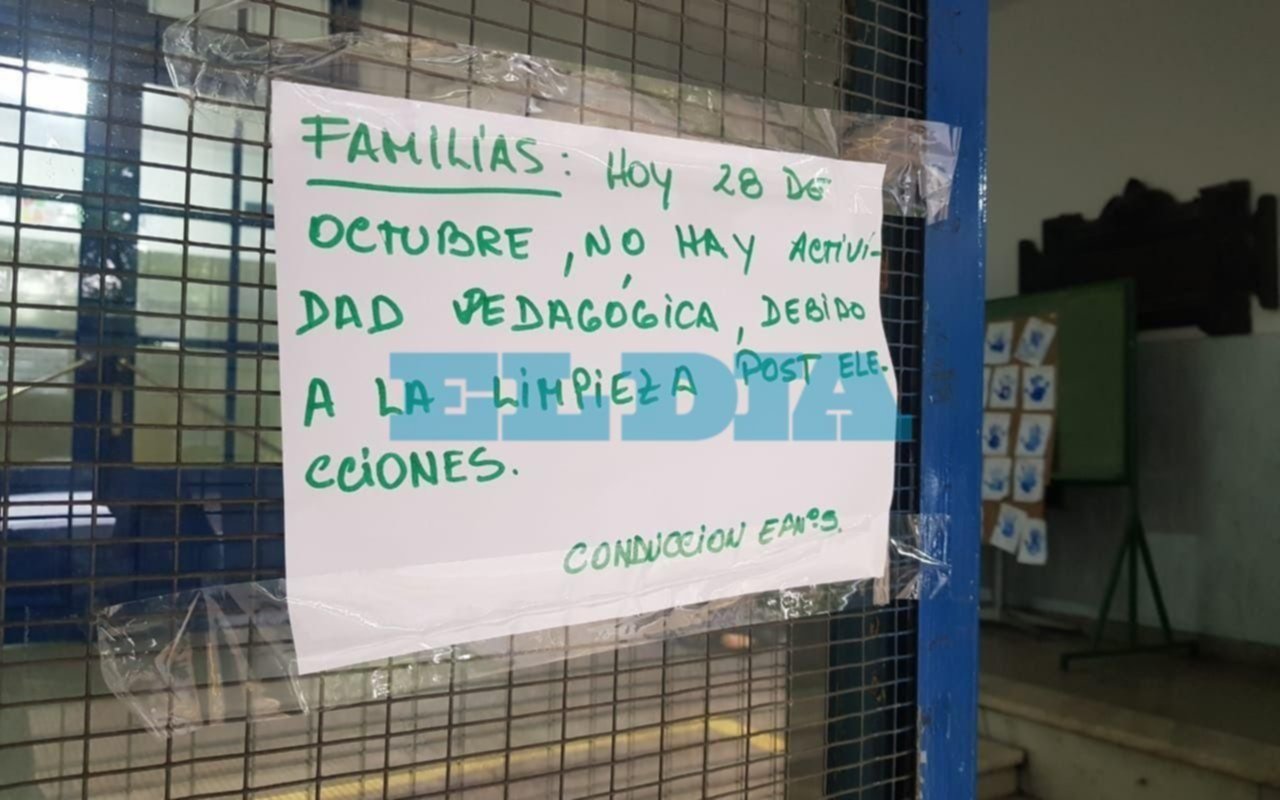 FAMILIAS: HOY 28 DE
OCTUBRE, NO HAY ACTIVI-
DAD PEDAGÓGICA, DEBIDO
A LA LIMPIEZA POST ELE-
CCIONES.
CONDUCCION EPNº9.
EL DIA